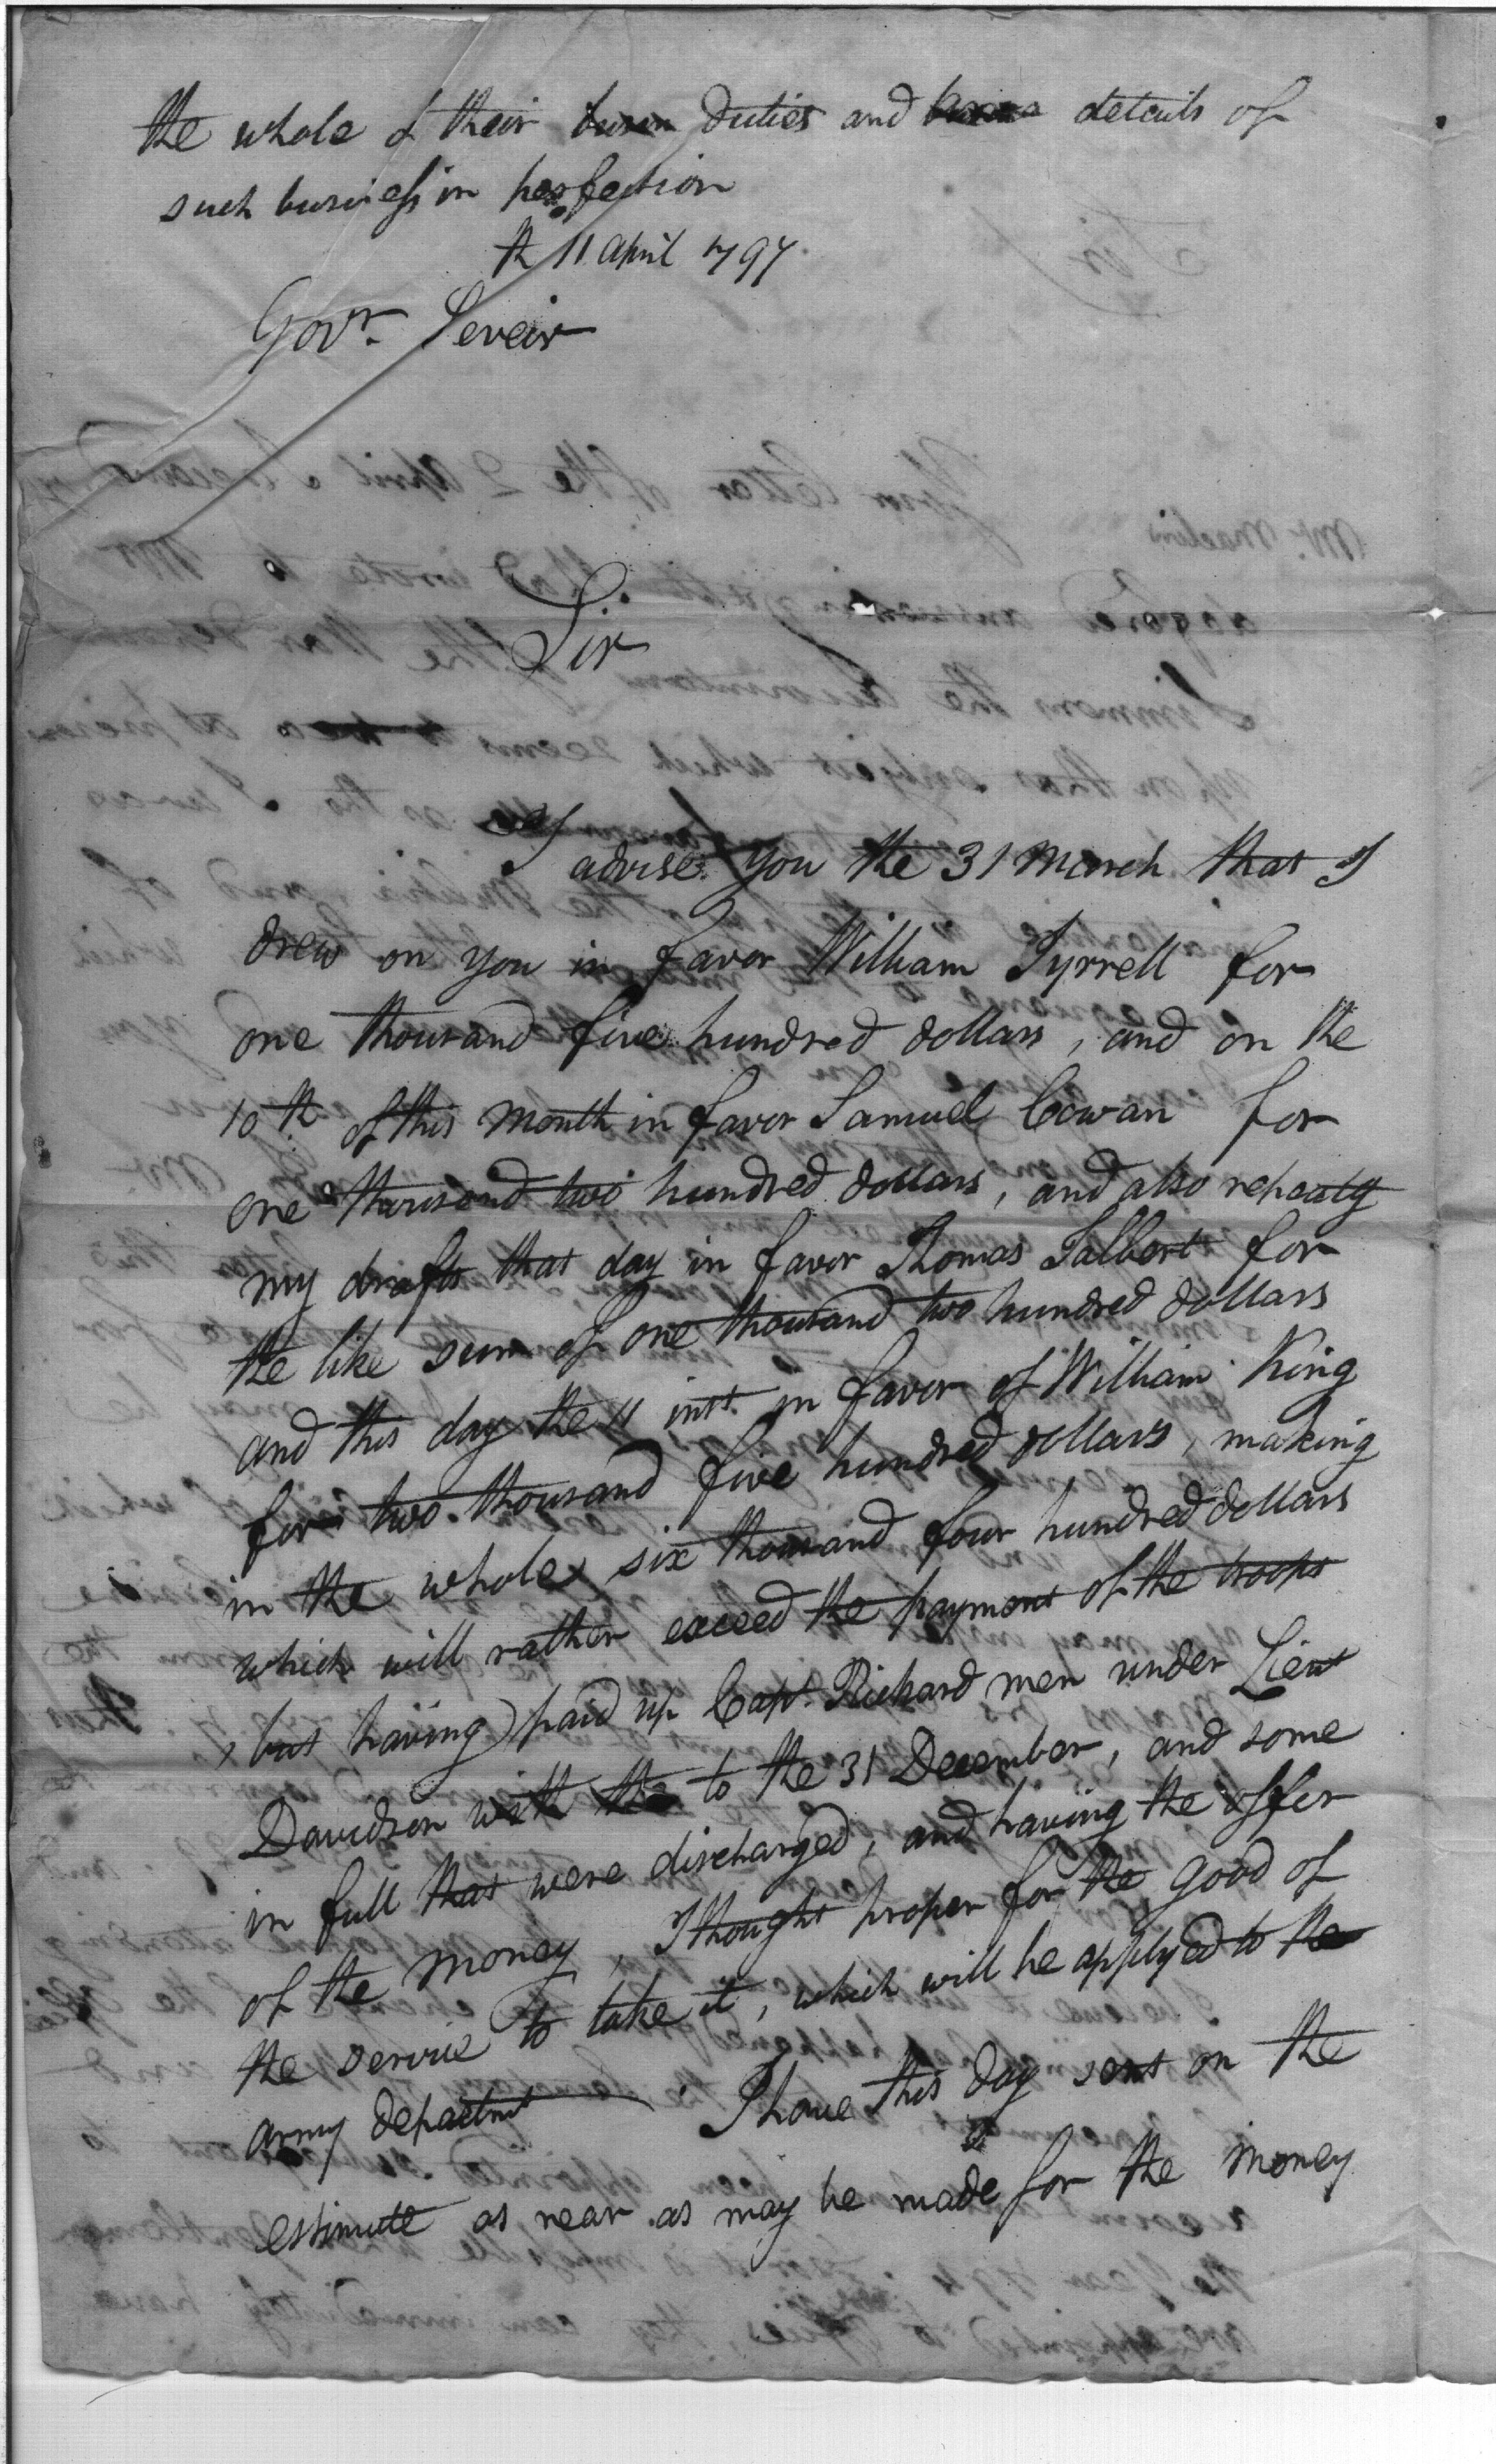 the whole of their duties and details of
such business in perfection
th 11 april 1797.
Govr. Seveir
Sir
I advise you the 31 March that I
drew on you in favor William Tyrrell for
one thousand five hundred dollars, and on the
10th of this month in favor Samuel Cowan for
one thousand two hundred dollars, and also
my drafts that day in favor Thomas Talbert for
the like sum of one thousand two hundred dollars
and this day the 11 inst. in favor of William King
for two thousand five hundred dollars, making
in the whole six thousand four hundred dollars
which will rather exceed the payment of the troops
, but having paid up Capt. Richard men under Lieut
Davidson to the 31 December, and some
in full that were discharged, and having the offer
of the money, I thought proper for the good of
the service to take it, which will be applyed to the
army . I have this day sent on the
estimate as near as may be made for the money